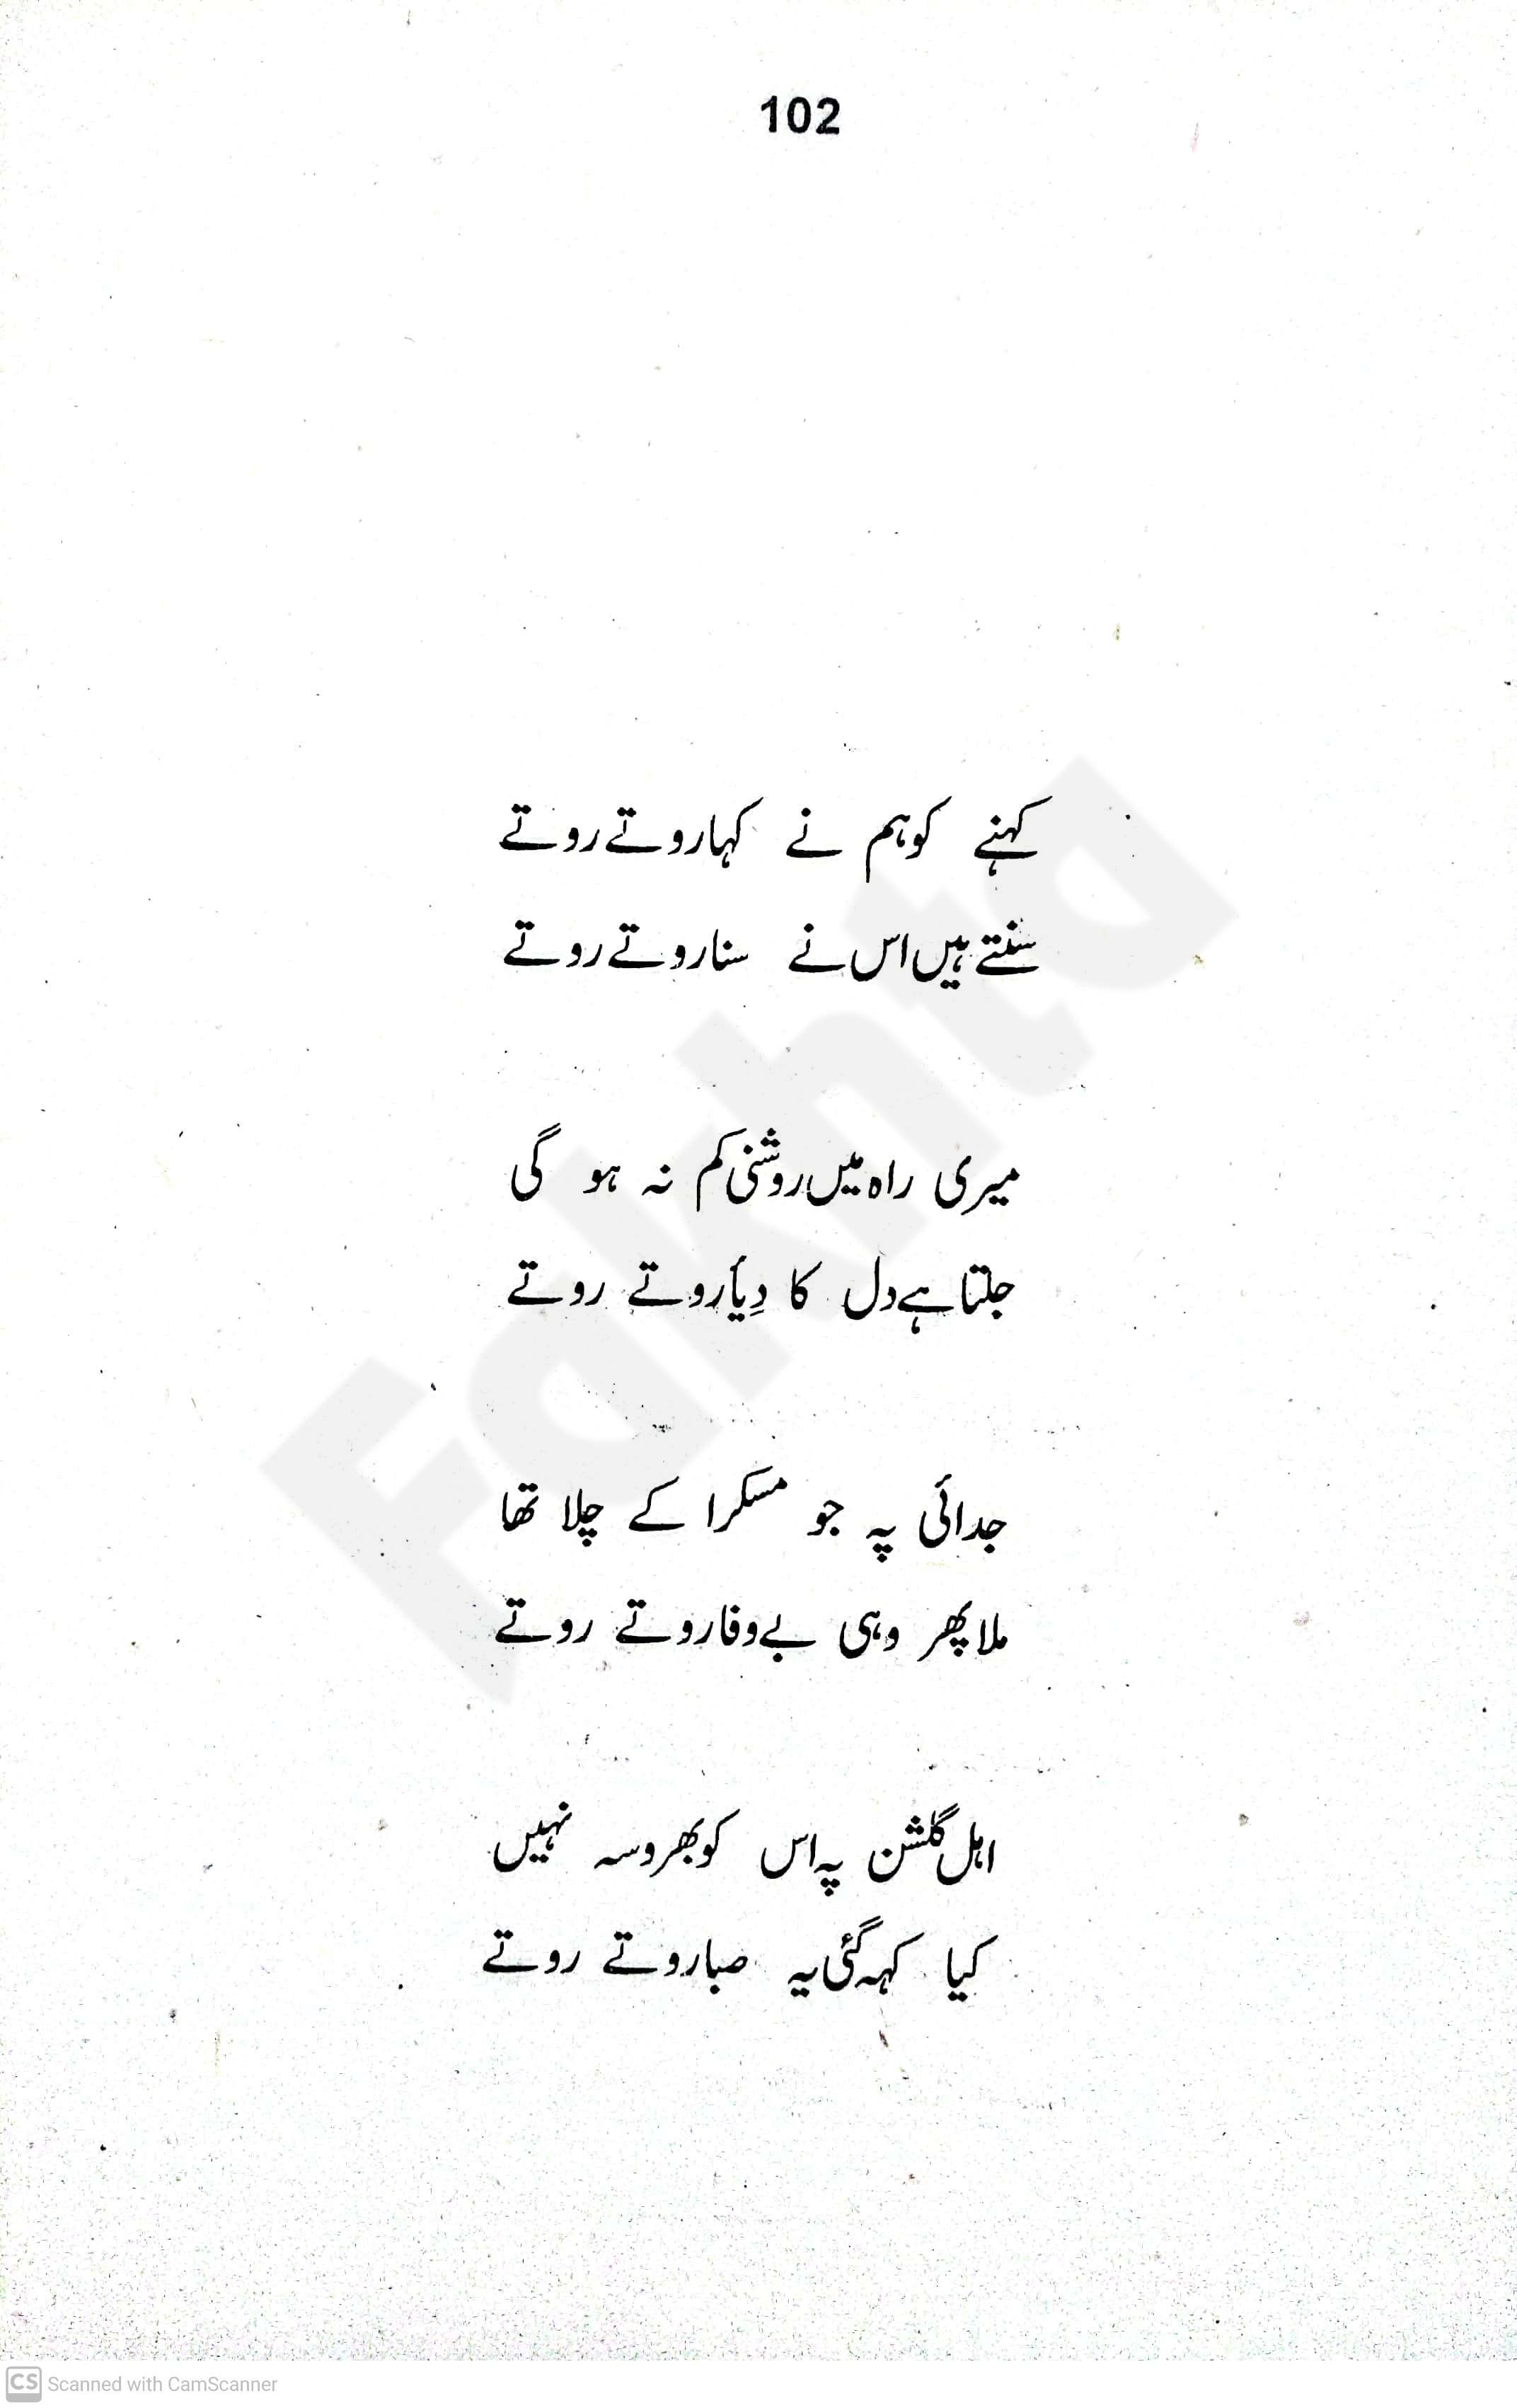 102
کہنے کو ہم نے کہا روتے روتے
سنتے ہیں اس نے سنا روتے روتے
میری راہ میں روشنی کم نہ ہو گی
جلتا ہے دل کا دِیأ روتے روتے
جدائی پہ جو مسکرا کے چلا تھا
ملا پھر وہی بے وفا روتے روتے
اہل گلشن پہ اس کو بھروسہ نہیں
کیا کہہ گئی یہ صبا روتے روتے
Fakhta
CS Scanned with CamScanner